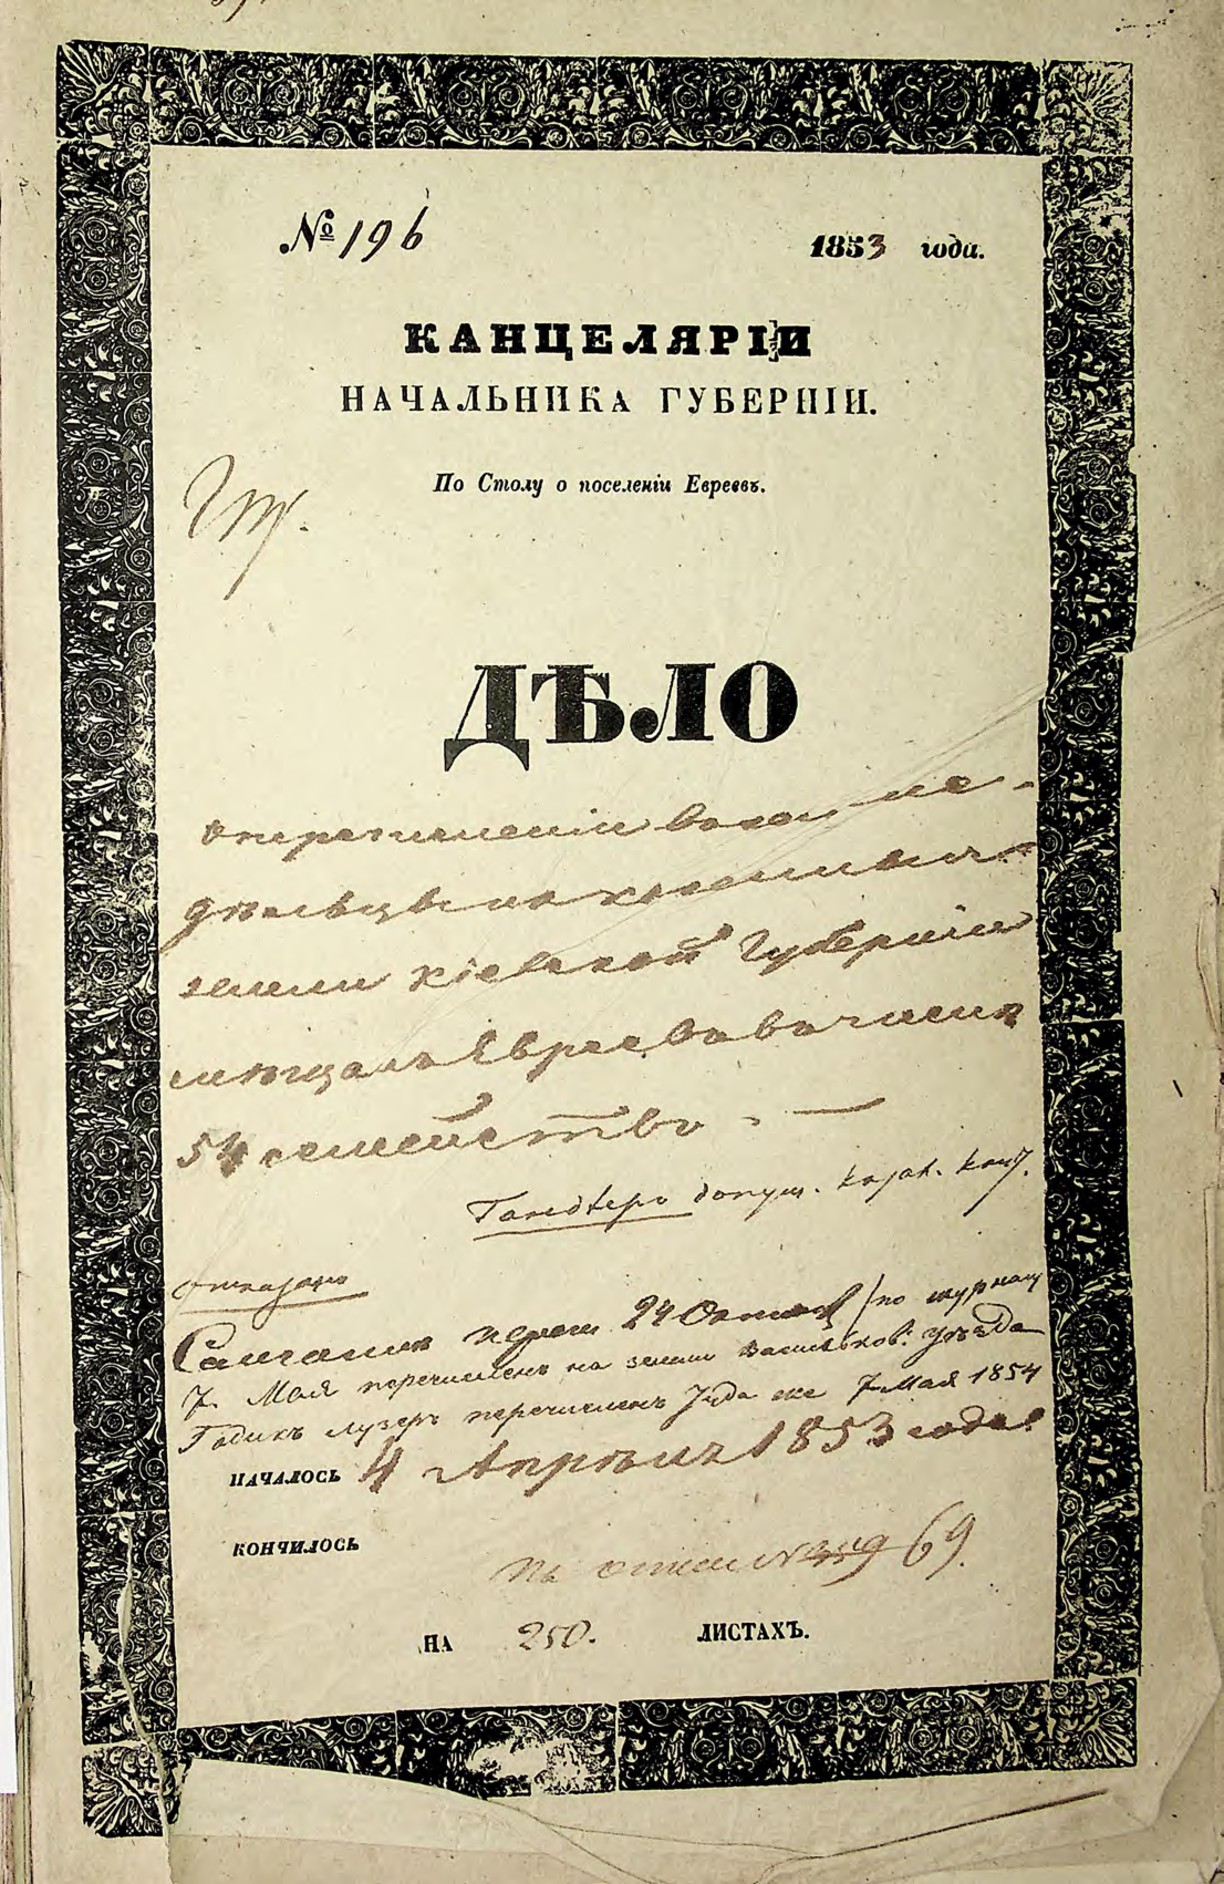 № 196 1853 года.
КАНЦЕЛЯРІИ
НАЧАЛЬНИКА ГУБЕРНІИ.
По Столу о поселеніи Евреевъ.
ДѢЛО
о перечисленіи въ земле-
дѣльцы на казенныя
земли Кіевской Губерніи
мѣщанъ Евреевъ въ числѣ
54 семействъ. —
допущ.
отказано
24 по журналу
7. Мая перечисленъ на земли Васильков: уѣзда
перечисленъ Іуда же 7 Мая 1854
НАЧАЛОСЬ 4 Апрѣля 1853 года
КОНЧИЛОСЬ
по описи № 359 69.
НА 250. ЛИСТАХЪ.